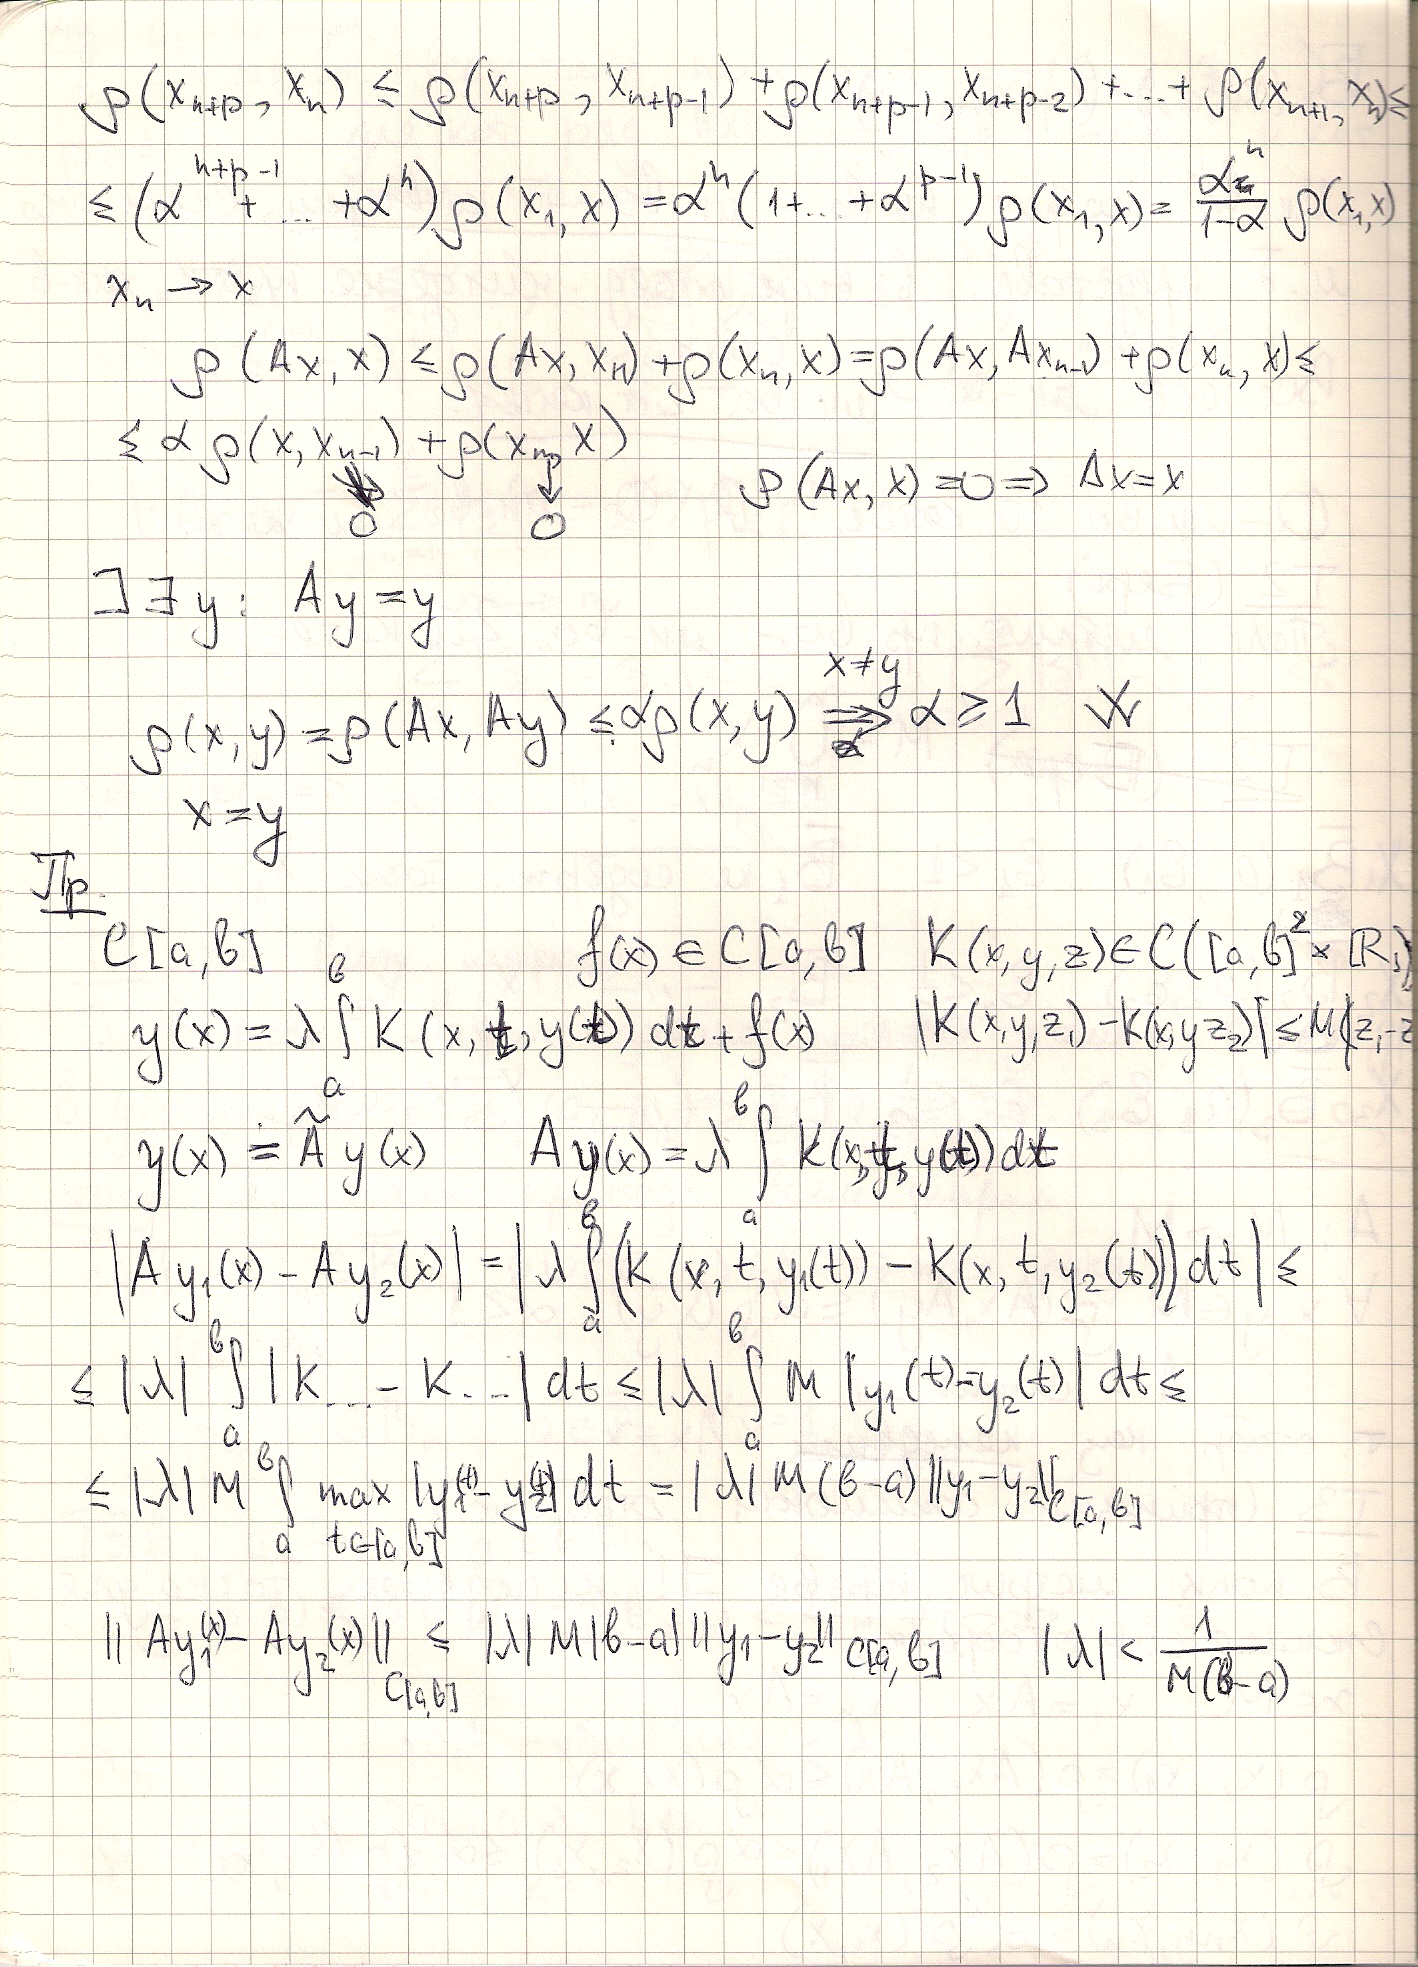 ρ(x_{n+p}, x_n) ≤ ρ(x_{n+p}, x_{n+p-1}) + ρ(x_{n+p-1}, x_{n+p-2}) + ... + ρ(x_{n+1}, x_n) ≤
≤ (α^{n+p-1} + ... + α^n) ρ(x_1, x) = α^n (1 + ... + α^{p-1}) ρ(x_1, x) = α^n/(1-α) ρ(x_1, x)
x_n → x
ρ(Ax, x) ≤ ρ(Ax, x_n) + ρ(x_n, x) = ρ(Ax, Ax_{n-1}) + ρ(x_n, x) ≤
≤ α ρ(x, x_{n-1}) + ρ(x_n, x) ρ(Ax, x) = 0 ⇒ Ax = x
↓ 0 ↓ 0
] ∃ y: Ay = y
ρ(x, y) = ρ(Ax, Ay) ≤ αρ(x, y) ⇒^{x≠y} α ≥ 1
x = y
Пр.
C[a, b] f(x) ∈ C[a, b] K(x, y, z) ∈ C([a, b]^2 × ℝ)
y(x) = λ ∫_a^b K(x, t, y(t)) dt + f(x) |K(x, y, z_1) - K(x, y z_2)| ≤ M|z_1 - z
y(x) = Ãy(x) Ay(x) = λ ∫_a^b K(x, t, y(t)) dt
|Ay_1(x) - Ay_2(x)| = |λ ∫_a^b (K(x, t, y_1(t)) - K(x, t, y_2(t))) dt| ≤
≤ |λ| ∫_a^b |K ... - K ...| dt ≤ |λ| ∫_a^b M |y_1(t) - y_2(t)| dt ≤
≤ |λ| M ∫_a^b max_{t∈[a, b]} |y_1(t) - y_2(t)| dt = |λ| M (b-a) ||y_1 - y_2||_{C[a, b]}
||Ay_1(x) - Ay_2(x)||_{C[a,b]} ≤ |λ| M |b-a| ||y_1 - y_2||_{C[a, b]} |λ| < 1/(M(b-a))